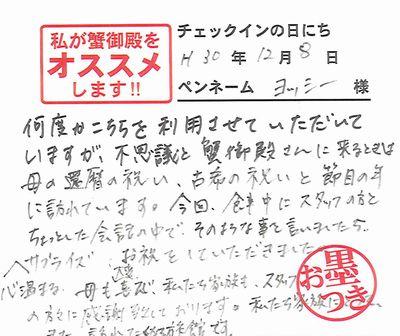 私が蟹御殿を
オススメ
します!!
チェックインの日にち
H 30 年 12 月 8 日
ペンネーム ヨッシー 様
何度かこちらを利用させていただいて
いますが、不思議と蟹御殿さんに来るときは
母の還暦の祝い、古希の祝いと節目の年
に訪れています。今回、食事中にスタッフの方と
ちょっとした会話の中で、そのような事を言いましたら、
サプライズ お祝をしていただきました。
心温まる 母も喜び 私たち家族も、スタッフ
の方に感謝 しております。私たち家族に
また 訪れたい 旅館です。
お墨つき